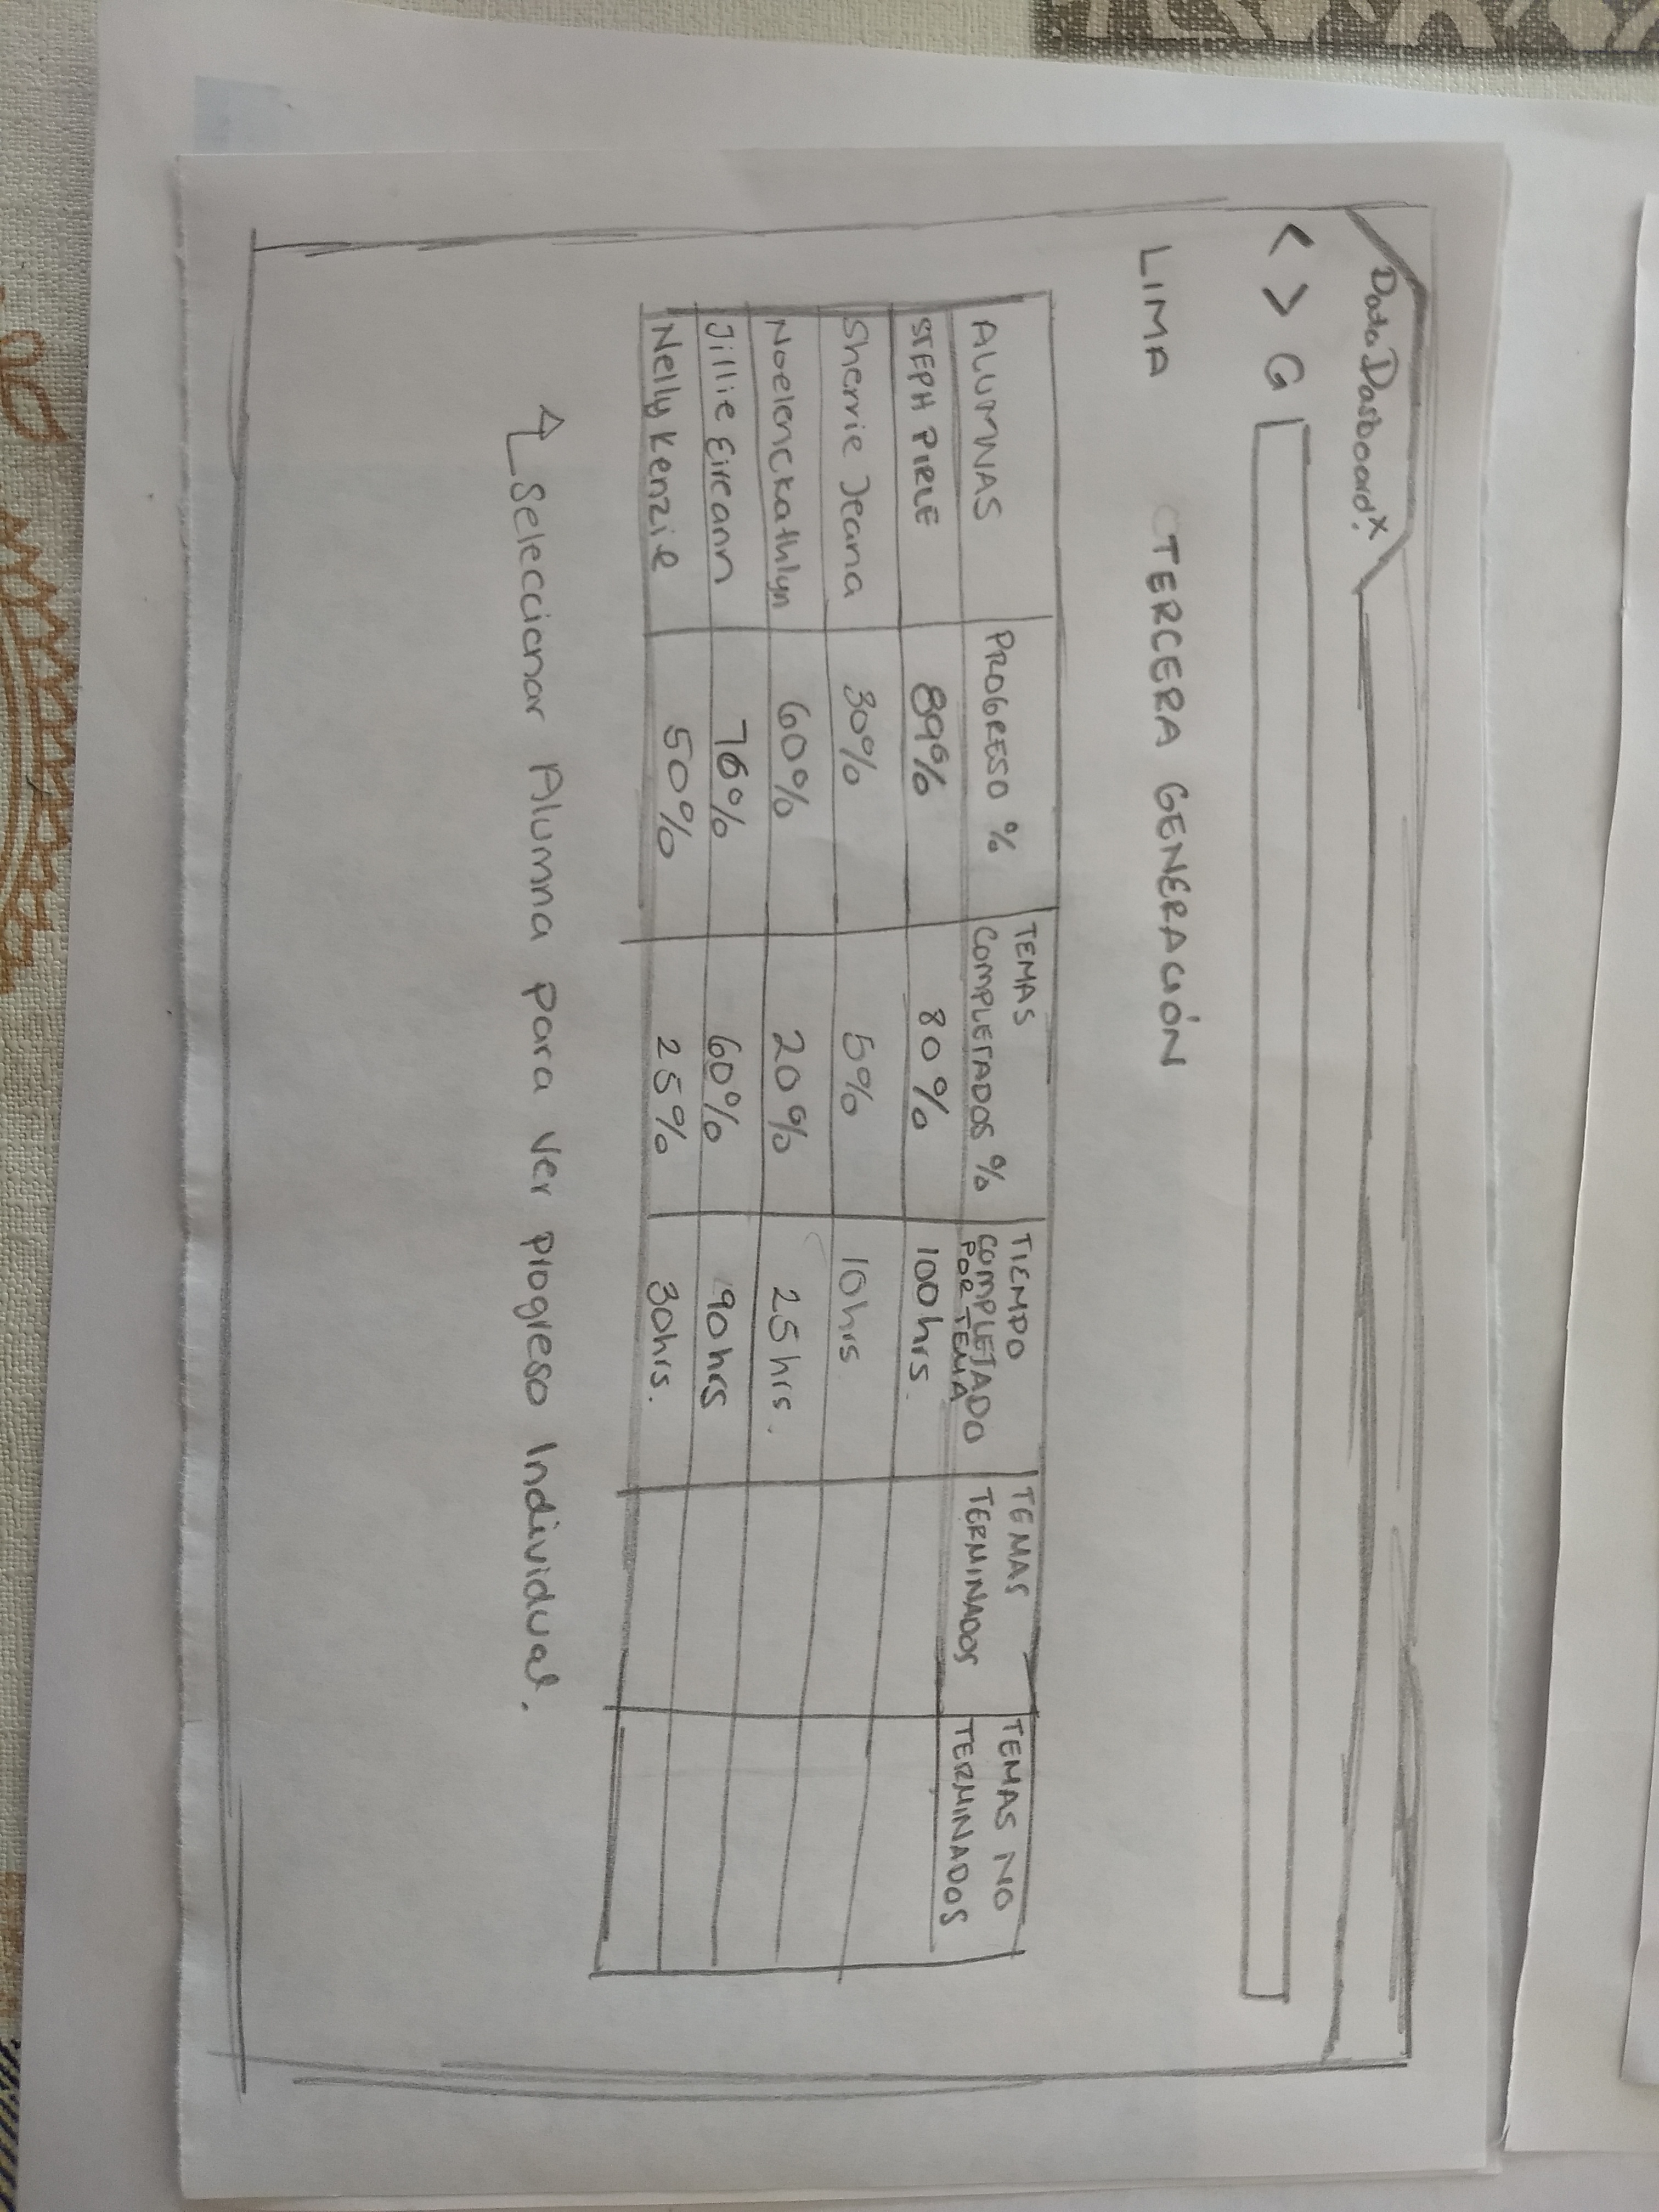 Data Dasboard x
< > G
LIMA TERCERA GENERACIÓN
ALUMNAS PROGRESO % TEMAS COMPLETADOS % TIEMPO COMPLETADO POR TEMA TEMAS TERMINADOS TEMAS NO TERMINADOS
STEPH PIRLE 89% 80% 100 hrs.
Sherrie Jeana 30% 5% 10 hrs
Noelenckathlyn 60% 20% 25 hrs.
Jillie Eireann 76% 60% 90 hrs
Nelly Kenzie 50% 25% 30 hrs.
Seleccionar Alumna para ver progreso Individual.